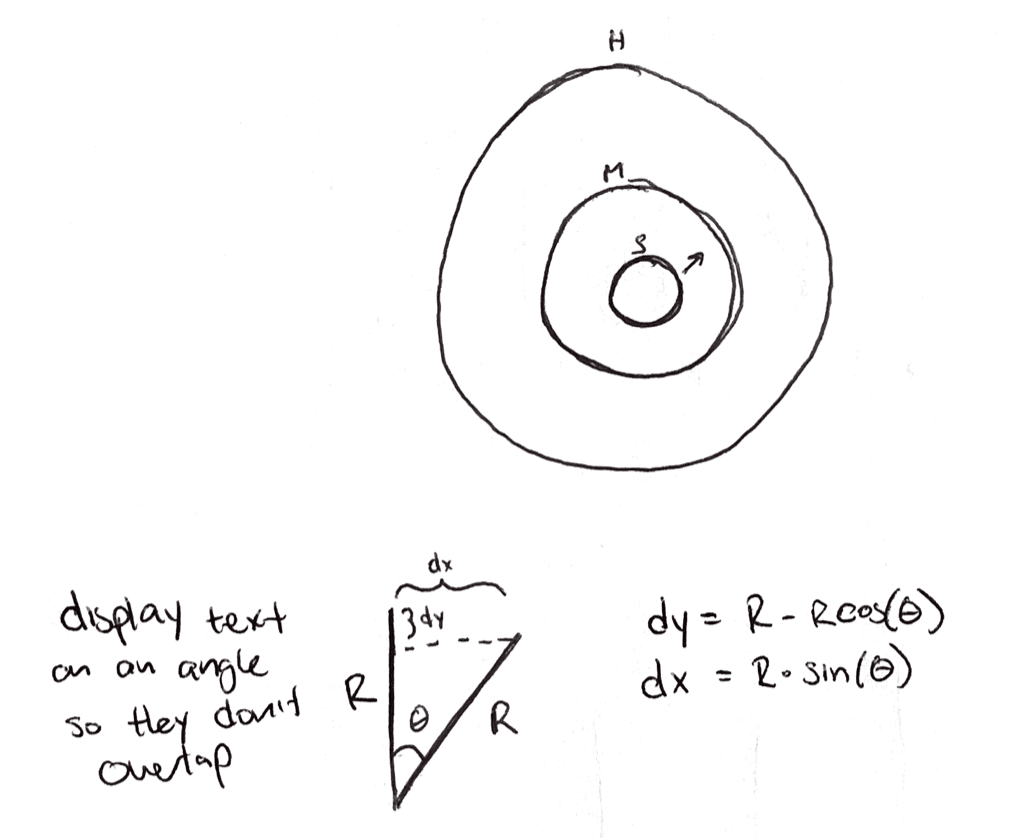 H
M
S
dx
dy
display text
on an angle
so they don't
overlap
R
θ
R
dy = R - Rcos(θ)
dx = R · sin(θ)